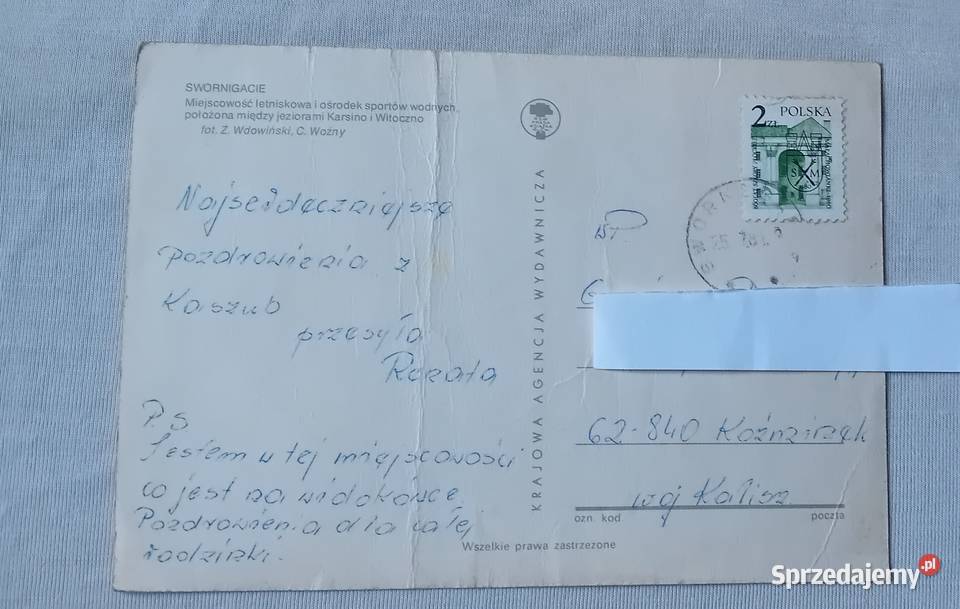 SWORNIGACIE
Miejscowość letniskowa i ośrodek sportów wodnych
położona między jeziorami Karsino i Witoczno
fot. Z. Wdowiński, C. Woźny
Najserdeczniejsze
pozdrowienia z
Kaszub
przesyła
Renata
P.S
Jestem w tej miejscowości
co jest na widokówce.
Pozdrowienia dla całej
rodzinki.
KRAJOWA AGENCJA WYDAWNICZA
2 ZŁ POLSKA
WP.
62-840 Koźminek
woj Kalisz
ozn. kod
poczta
Wszelkie prawa zastrzeżone
Sprzedajemy.pl